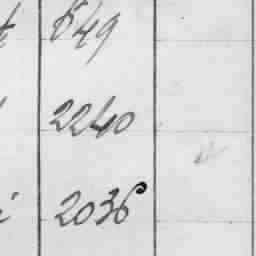 849
2240
2036